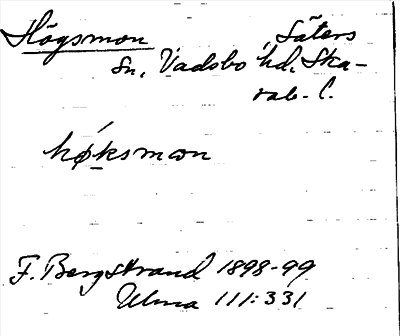 Högsmon Säters
sn, Vadsbo hd, Ska-
rab. l.
hǿksmon
F. Bergstrand 1898-99
Ulma 111:331